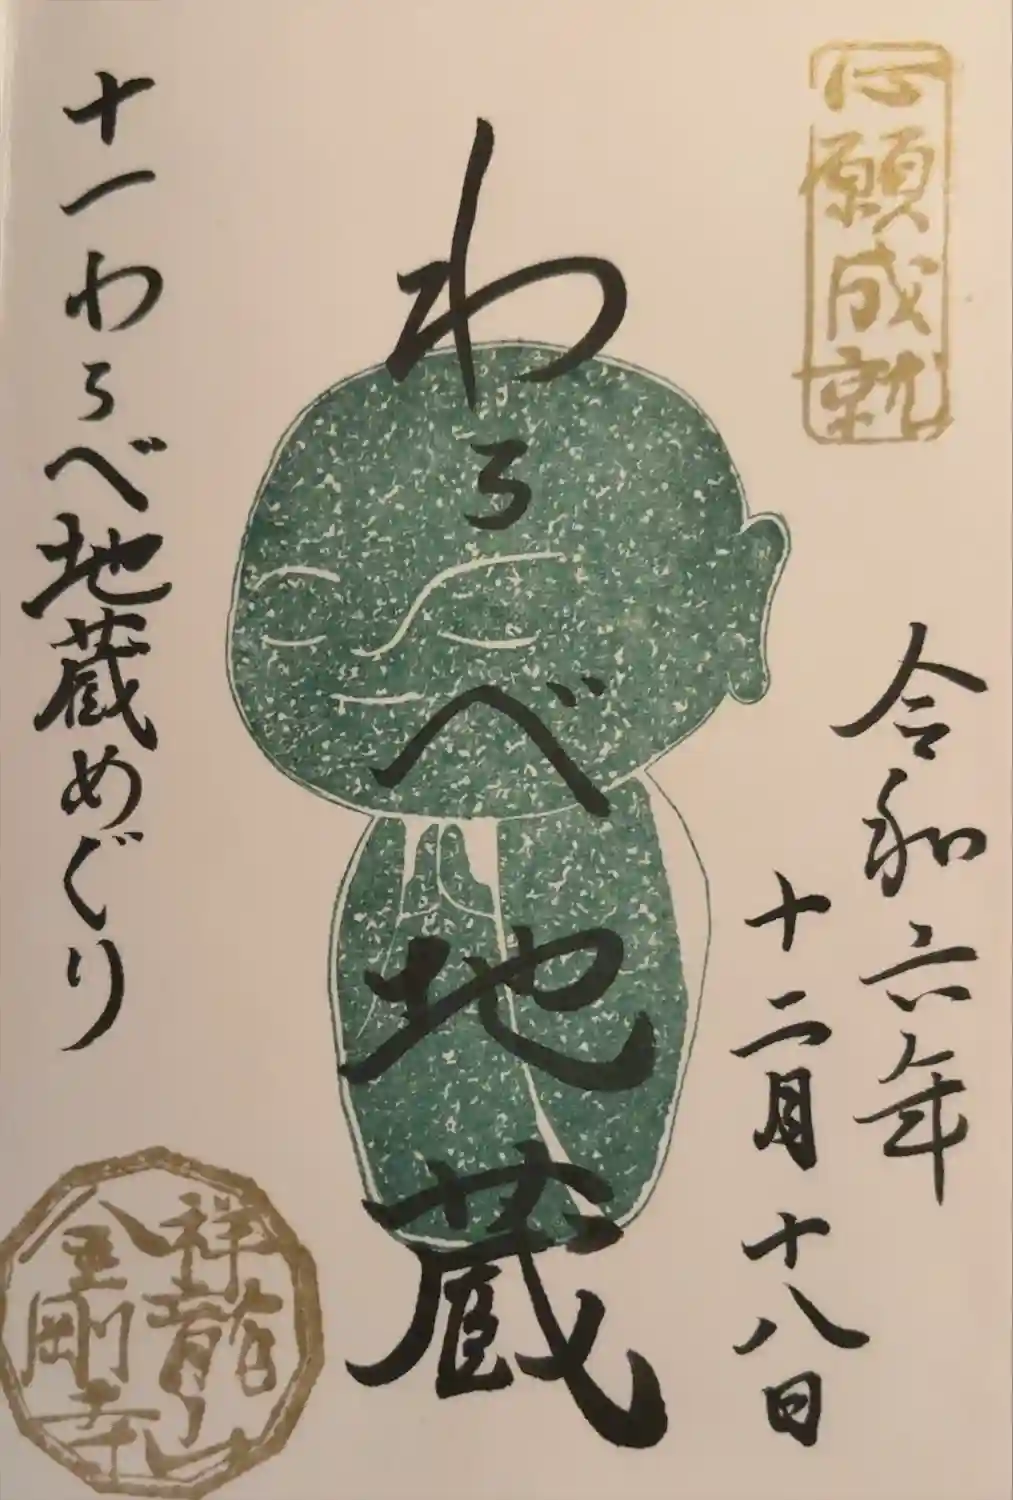 心願成就
令和六年
十二月十八日
わらべ地蔵
十一わらべ地蔵めぐり
祥龍山
金剛寺